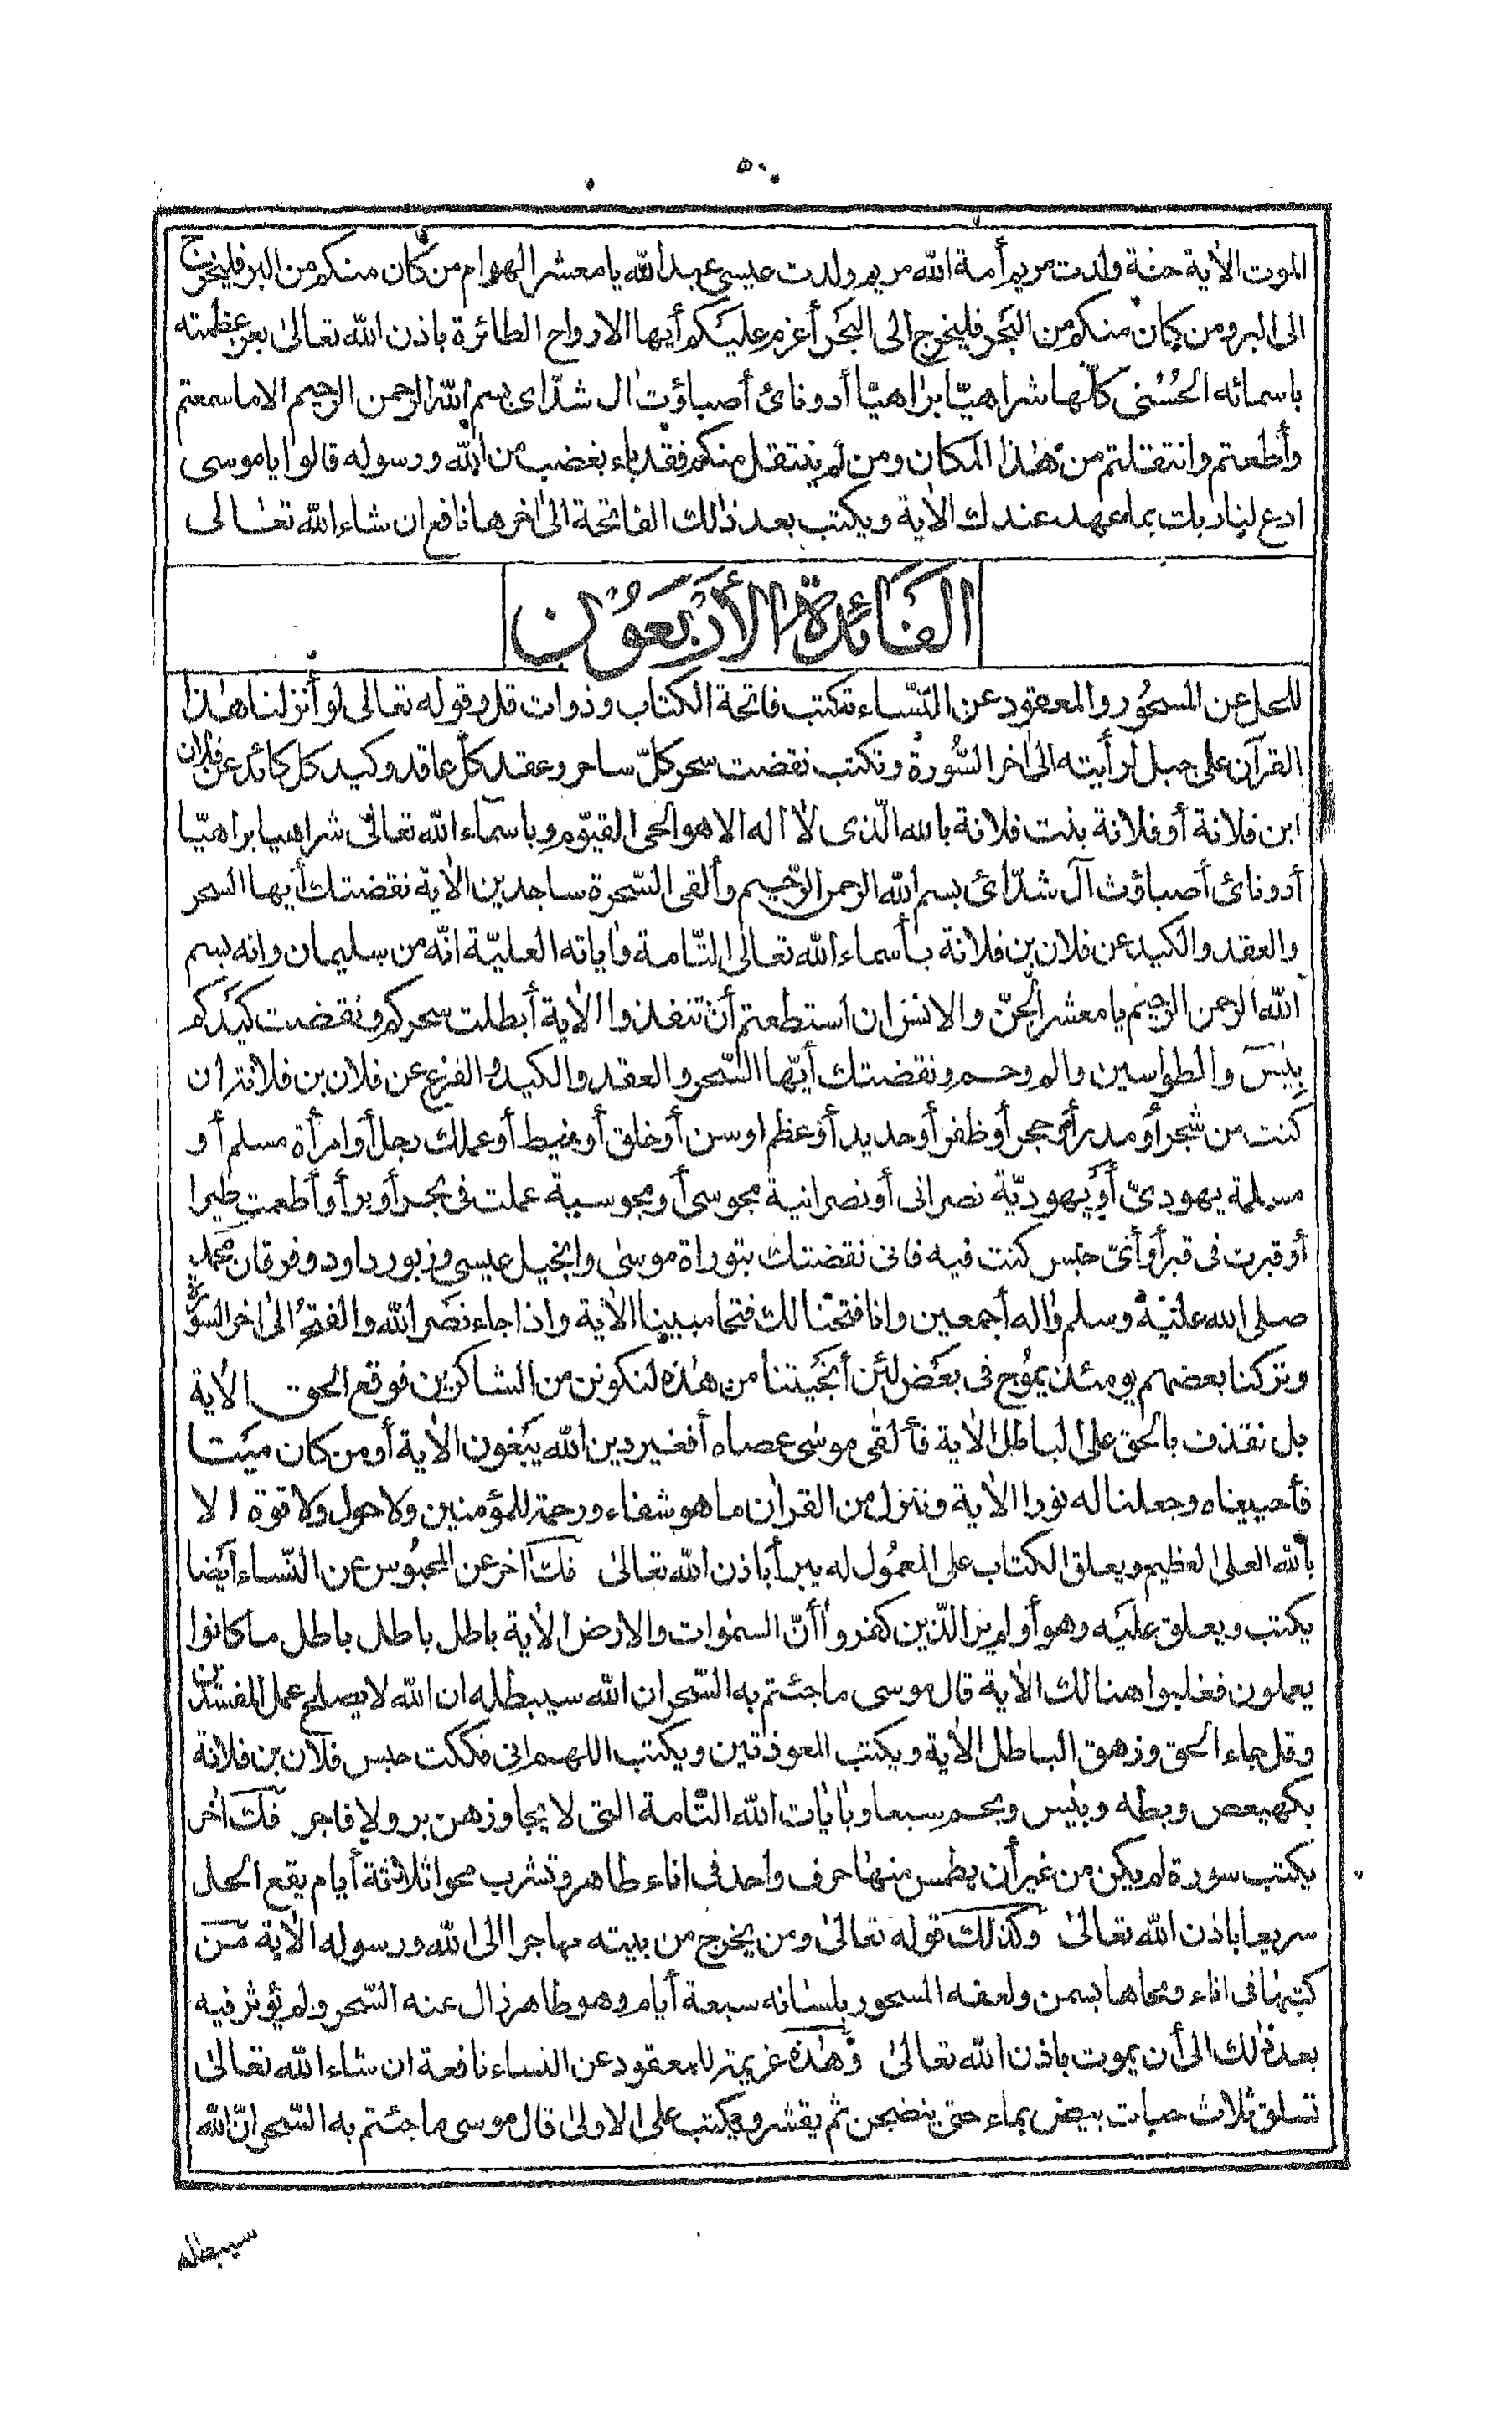 ٥٠
الموت الاٰية حنة ولدت مريم أمة الله مريم ولدت عيسى عبد الله يا معشر الهوام من كان منكم من البر فليخرج
الى البر ومن كان منكم من البحر فليخرج الى البحر أعزم عليكم أيها الارواح الطائرة باذن الله تعالىٰ بعز عظمته
باسمائه الحُسْنى كلّها شراهيّا براهيّا أدونائ أصباؤت ال شدّاى بسم الله الرحمن الرحيم الا ما سمعتم
وأطعتم وانتقلتم من هٰذا المكان ومن لم ينتقل منكم فقد باء بغضب من الله ورسوله قالوا يا موسى
ادع لنا ربك بما عهد عندك الاٰية ويكتب بعد ذٰلك الفاتحة الىٰ اٰخرها نافع ان شاء الله تعـالى
الفَائدة الأرْبَعُوْن
للحل عن المسحُور والمعقود عن النّسَاء تكتب فاتحة الكتاب وذوات قل وقوله تعالى لو أنزلنا هٰذا
القرآن على جبل لرأيته الىٰ اٰخر السُّورة وتكتب نقضت سحر كلّ ساحر وعقد كلّ عاقد وكيد كل كائد عن فلان
ابن فلانة أو فلانة بنت فلانة بالله الّذى لا اله الا هو الحى القيّوم وباسماء الله تعالىٰ شراهيا براهيّا
أدونائ أصباؤث آل شدّائ بسم الله الرحمن الرّحيم وألقى السّحرة ساجدين الاٰية نقضتك أيها السحر
والعقد والكيد عن فلان بن فلانة بأسماء الله تعالىٰ التّامة واٰياته العليّة انّه من سليمان وانه بسم
الله الرحمن الرحيم يا معشر الجنّ والانس ان استطعتم أن تنفذوا الاٰية أبطلت سحركم ونقضت كيدكم
بيٰسٓ والطواسين والم وحم ونقضتك أيّها السّحر والعقد والكيد والفزع عن فلان بن فلانة ان
كنت من شجر أو مدر أو حجر أو ظفر أو حديد أو عظم او سن أو خلق أو مخيط أو عملك رجل أو امرأة مسلم أو
مسلمة يهودىّ أو يهوديّة نصرانى أو نصرانية مجوسى أو مجوسية عملت فى بحر أو بر أو أطعمت طيرا
أو قبرت فى قبر أو أىّ حبس كنت فيه فانى نقضتك بتوراة موسىٰ وانجيل عيسى وزبور داود وفرقان محمد
صلى الله عليْه وسلم واٰله أجمعين وانا فتحنا لك فتحا مبينا الاٰية واذا جاء نصر الله والفتح الىٰ اٰخر السورة
وتركنا بعضهم يومئذ يموج فى بعض لئن أنجيتنا من هٰذه لنكونن من الشاكرين فوقع الحق الاٰية
بل نقذف بالحق على الباطل الاٰية فألقىٰ موسى عصاه أفغير دين الله يبغون الاٰية أو من كان ميتا
فأحييناه وجعلنا له نورا الاٰية وننزل من القراٰن ما هو شفاء ورحمة للمؤمنين ولا حول ولا قوة الا
بالله العلى العظيم ويعلق الكتاب على المعمُول له يبرأ باذن الله تعالىٰ فكّ اٰخر عن المحبُوس عن النّساء أيضا
يكتب ويعلق عليه وهو أولم ير الّذين كفروا أنّ السمٰوات والارض الاٰية باطل باطل باطل ما كانوا
يعملون فغلبوا هنالك الاٰية قال موسى ما جئتم به السّحر ان الله سيبطله ان الله لا يصلح عمل المفسدين
وقل جاء الحق وزهق الباطل الاٰية ويكتب المعوذتين ويكتب اللهم انى فككت حبس فلان بن فلانة
بكهيعص وبطٰه وبيٰس وبحم سبعا وباٰيات الله التّامة التى لا يجاوزهن بر ولا فاجر فكّ اٰخر
يكتب سورة لم يكن من غير أن يطمس منها حرف واحد فى اناء طاهر وتشرب محوا ثلاثة أيام يقع الحل
سريعا باذن الله تعالىٰ وكذلك قوله تعالىٰ ومن يخرج من بيته مهاجرا الى الله ورسوله الاٰية من
كتبها فى اناء ومحاها بسمن ولعقه المسحور بلسانه سبعة أيام وهو طاهر زال عنه السّحر ولم يؤثر فيه
بعد ذٰلك الى أن يموت باذن الله تعالىٰ وهٰذه عزيمة للمعقود عن النساء نافعة ان شاء الله تعالىٰ
تسلق ثلاث حبات بيض بماء حتى ينضجن ثم يقشر ويكتب على الاولىٰ قال موسى ما جئتم به السّحر انّ الله
سيبطله